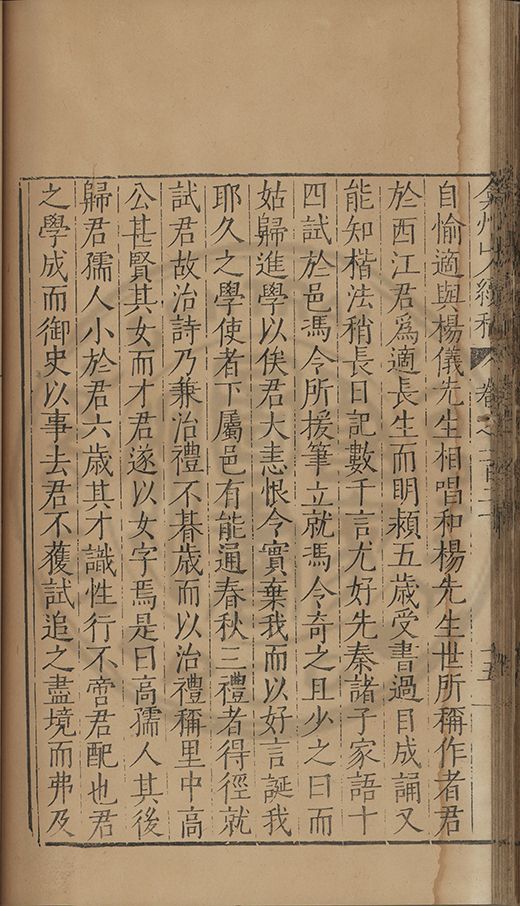 弇州山人續稿 卷之一百二十 十五
自愉適與楊儀先生相唱和楊先生世所稱作者君
於西江君爲適長生而明颖五歲受書過目成誦又
能知楷法稍長日記數千言尤好先秦諸子家語十
四試於邑馮令所援筆立就馮令奇之且少之曰而
姑歸進學以俟君大恚恨令實棄我而以好言誕我
耶久之學使者下屬邑有能通春秋三禮者得徑就
試君故治詩乃兼治禮不朞歲而以治禮稱里中高
公甚賢其女而才君遂以女字焉是曰高孺人其後
歸君孺人小於君六歲其才識性行不啻君配也君
之學成而御史以事去君不獲試追之盡境而弗及